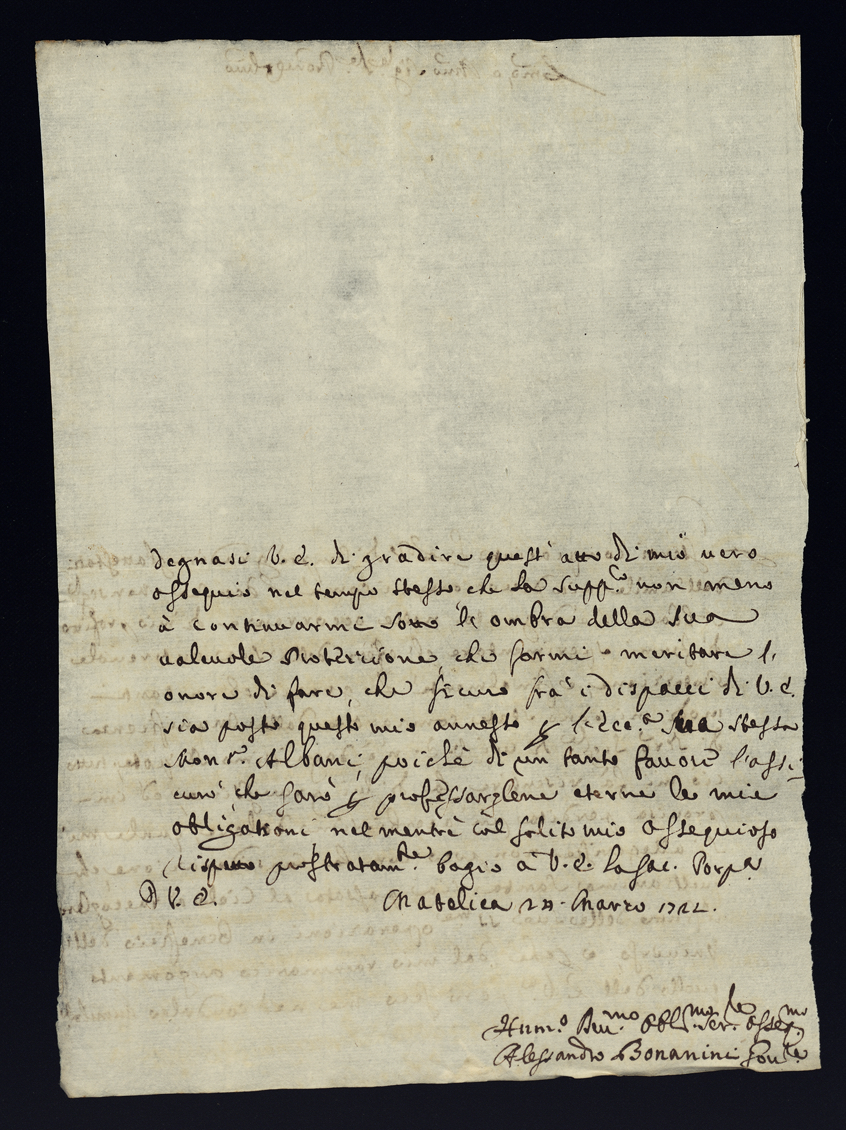 degnasi V. E. di gradire quest' atto di mio vero
ossequio nel tempo stesso che la supp.co non meno
à continuarmi sotto le ombra della sua
valevole Protezzione, che farmi meritare l'
onore di fare, che sicuro frà i dispacci di V. E.
sia posto questo mio annesso p l'Ecc.a sua stessa
Mon.r Albani, poiche di un tanto favore l'assi-
curo che sarò p professargliene eterne le mie
obligationi nel mentre col solito mio ossequioso
rispetto prostratam.te bagio à V. E. la Sac. Porp.a
D V. E. Matelica 28 Marzo 1722.
Hum.o Div.mo Obl.mo Ser.re osseq.mo
Alessandro Bonanini Gov.re